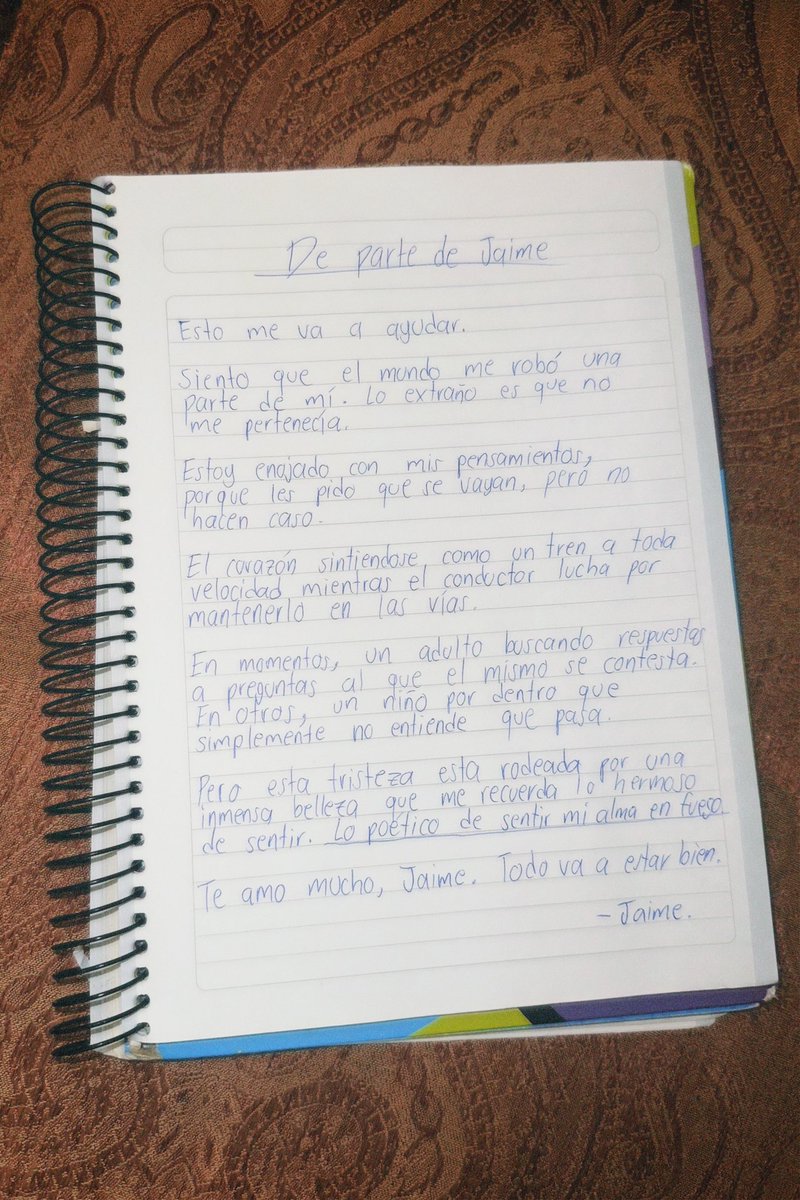 De parte de Jaime
Esto me va a ayudar.
Siento que el mundo me robó una
parte de mí. Lo extraño es que no
me pertenecía.
Estoy enojado con mis pensamientos,
porque les pido que se vayan, pero no
hacen caso.
El corazón sintiendose como un tren a toda
velocidad mientras el conductor lucha por
mantenerlo en las vías.
En momentos, un adulto buscando respuestas
a preguntas al que el mismo se contesta.
En otros, un niño por dentro que
simplemente no entiende que pasa.
Pero esta tristeza esta rodeada por una
inmensa belleza que me recuerda lo hermoso
de sentir. Lo poético de sentir mi alma en fuego.
Te amo mucho, Jaime. Todo va a estar bien.
- Jaime.